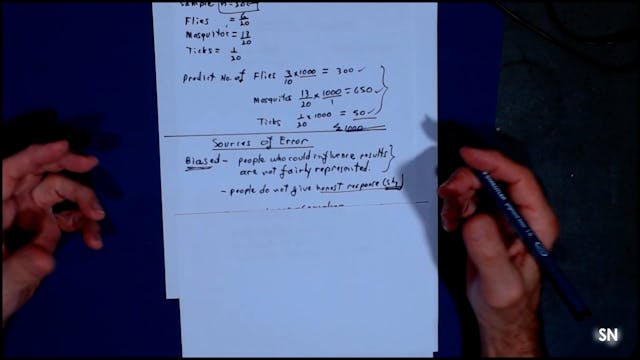 Sample
Flies = 6/20
Mosquitoe = 13/20
Ticks = 1/20
Predict No. of Flies 3/10 x 1000 = 300 ✓
Mosquitoes 13/20 x 1000/1 = 650 ✓
Ticks 1/20 x 1000 = 50 ✓
1000
Sources of Error
Biased - people who could influence results
are not fairly represented.
- people do not give honest response (shy
SN